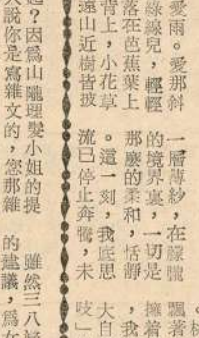 愛雨。愛那斜
綠線兒，輕輕
落在芭蕉葉上
背上，小花草
遠山近樹皆披
一層薄紗，在朦朧
的境界裏，一切是
那麼的柔和，恬靜
。這一刻，我底思
流已停止奔騰，未
飄著
擁着
，我
大自
吱」
起？因爲山隴理髮小姐的提
人說你是寫雜文的，您那雜
雖然三八
的建議，爲